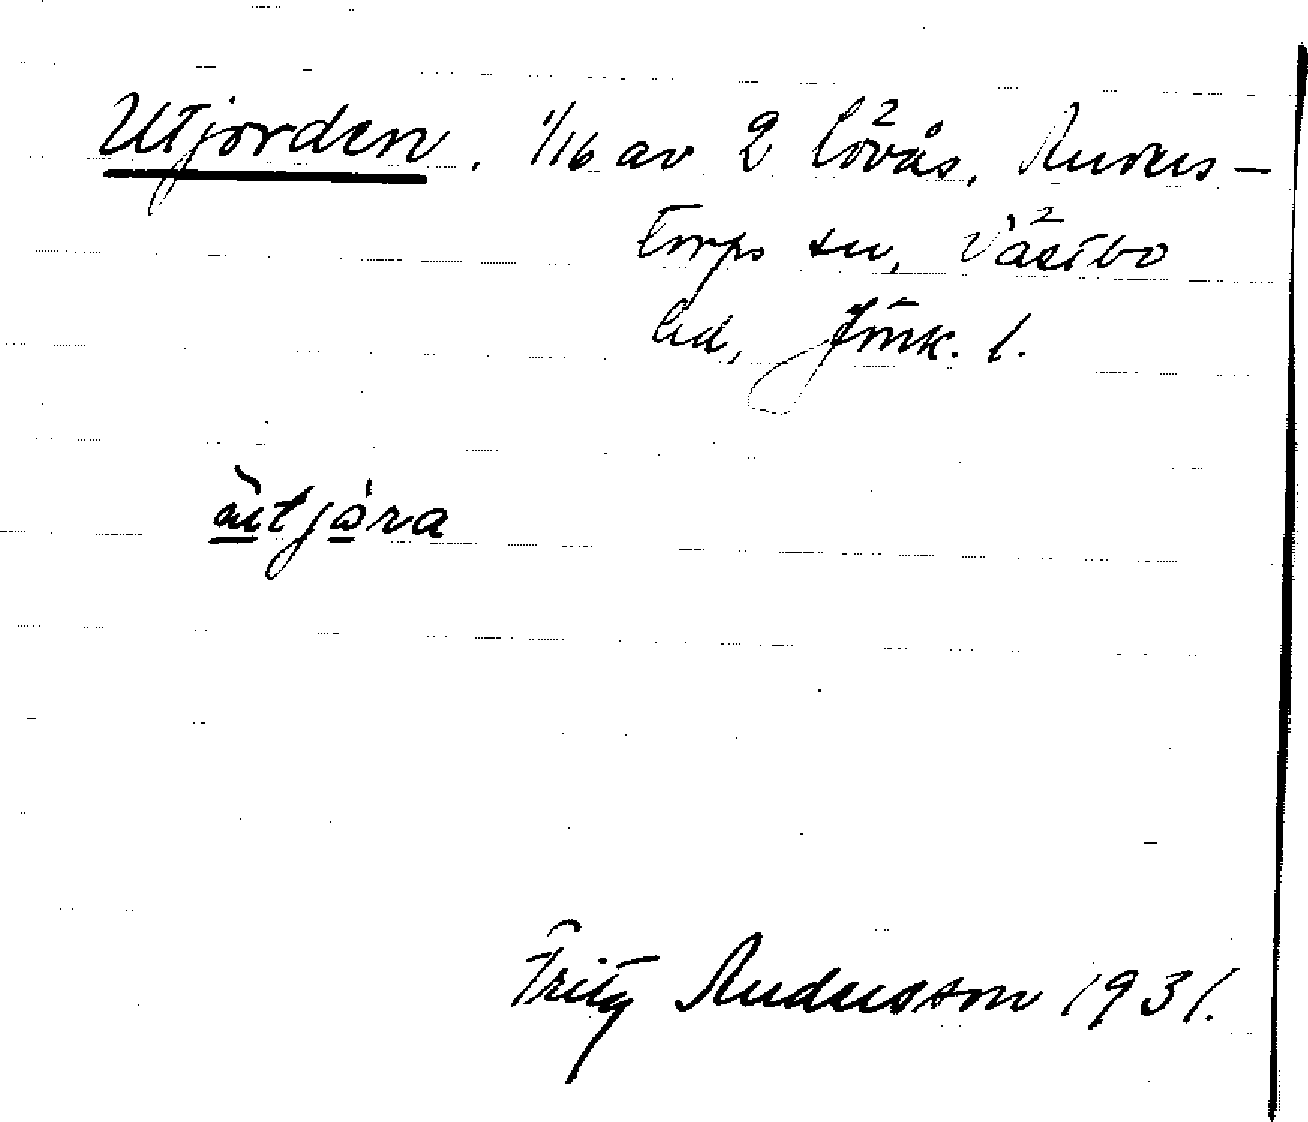 Utjorden. 1/16 av 2 Lövås, Anders-
torps sn, Västbo
hd, Jönk. l.
ùtjára
Fritz Andersson 1931.